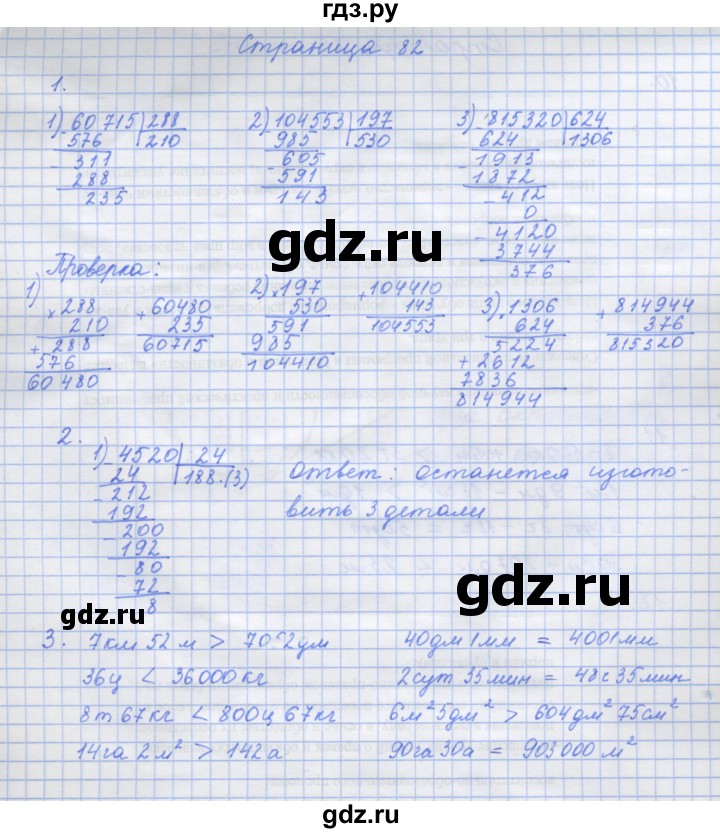 гдз.ру
Страница 82
1.
1) 60715 | 288
576 | 210
311
288
235
2) 104553 | 197
985 | 530
605
591
143
3) 815320 | 624
624 | 1306
1913
1872
412
0
4120
3744
376
gdz.ru
Проверка:
1) × 288
210
+ 288
576
60480
+ 60480
235
60715
2) × 197
530
591
985
104410
+ 104410
143
104553
3) × 1306
624
5224
+ 2612
7836
814944
+ 814944
376
815320
2.
1) 4520 | 24
24 | 188.(3)
212
192
200
192
80
72
8
Ответ: останется изгото-
вить 3 детали
gdz.ru
gdz.ru
3. 7км 52 м > 7052дм
40дм 1мм = 4001мм
36ц < 36000кг
2сут 35мин = 48с 35мин
8т 67кг < 800ц 67кг
6м²5дм² > 604дм² 75см²
14га 2м² > 142а
90га 30а = 903000 м²
gdz.ru